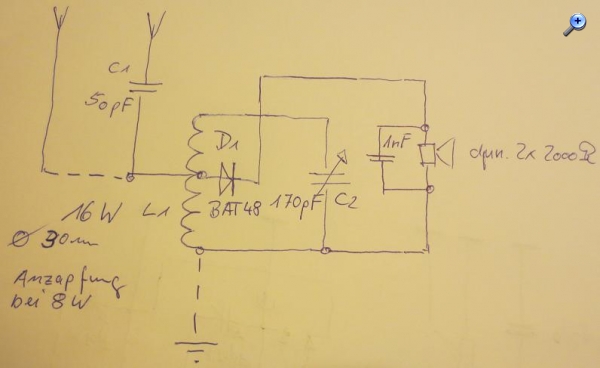 C1
50pF
D1
1nF
dyn. 2x 2000Ω
16W L1
BAT48
170pF C2
Ø 90mm
Anzapfung
bei 8W